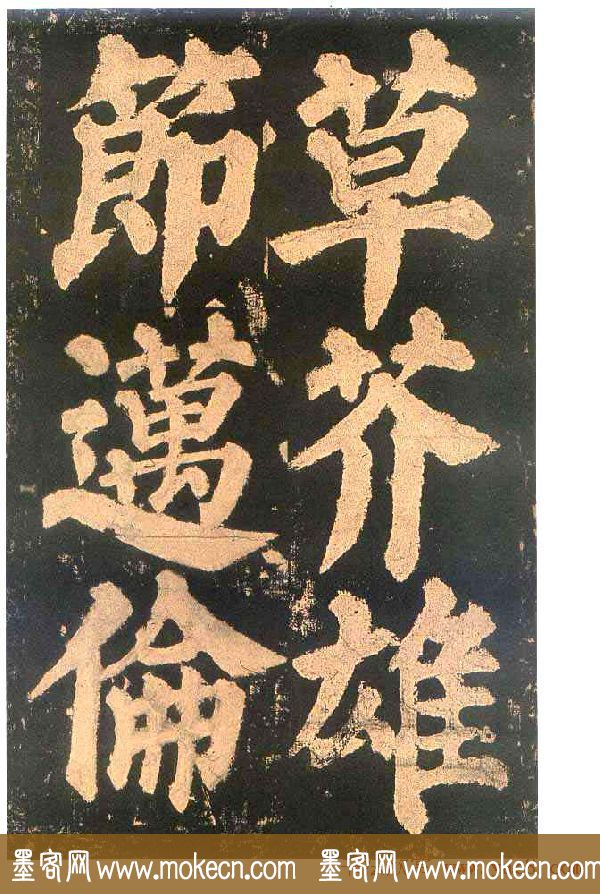 草芥雄
節邁倫
墨客网 www.mokecn.com 墨客网 www.mokecn.com